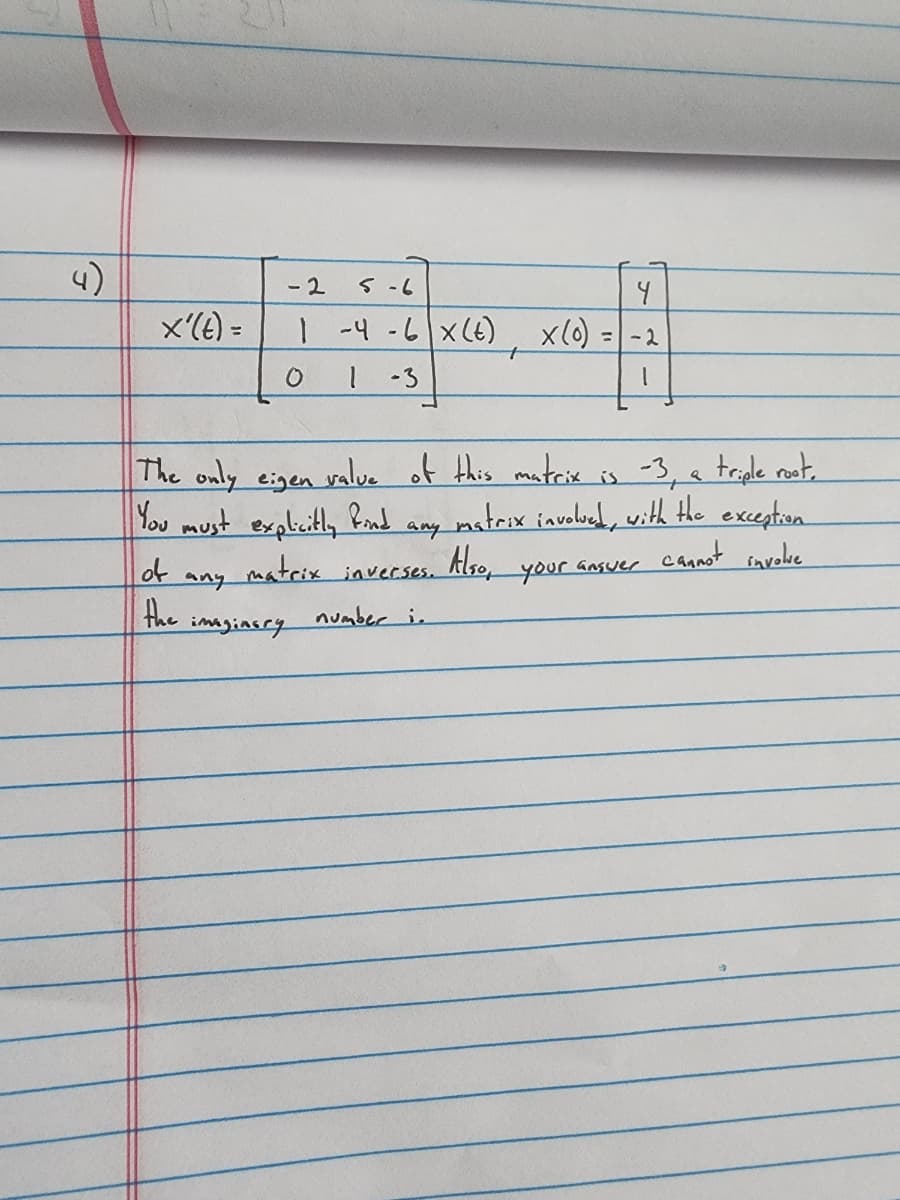 4)
-2 5 -6 4
x'(t) = 1 -4 -6 x(t), x(0) = -2
0 1 -3 1
The only eigen value of this matrix is -3, a triple root.
You must explicitly find any matrix involved, with the exception
of any matrix inverses. Also, your answer cannot involve
the imaginary number i.